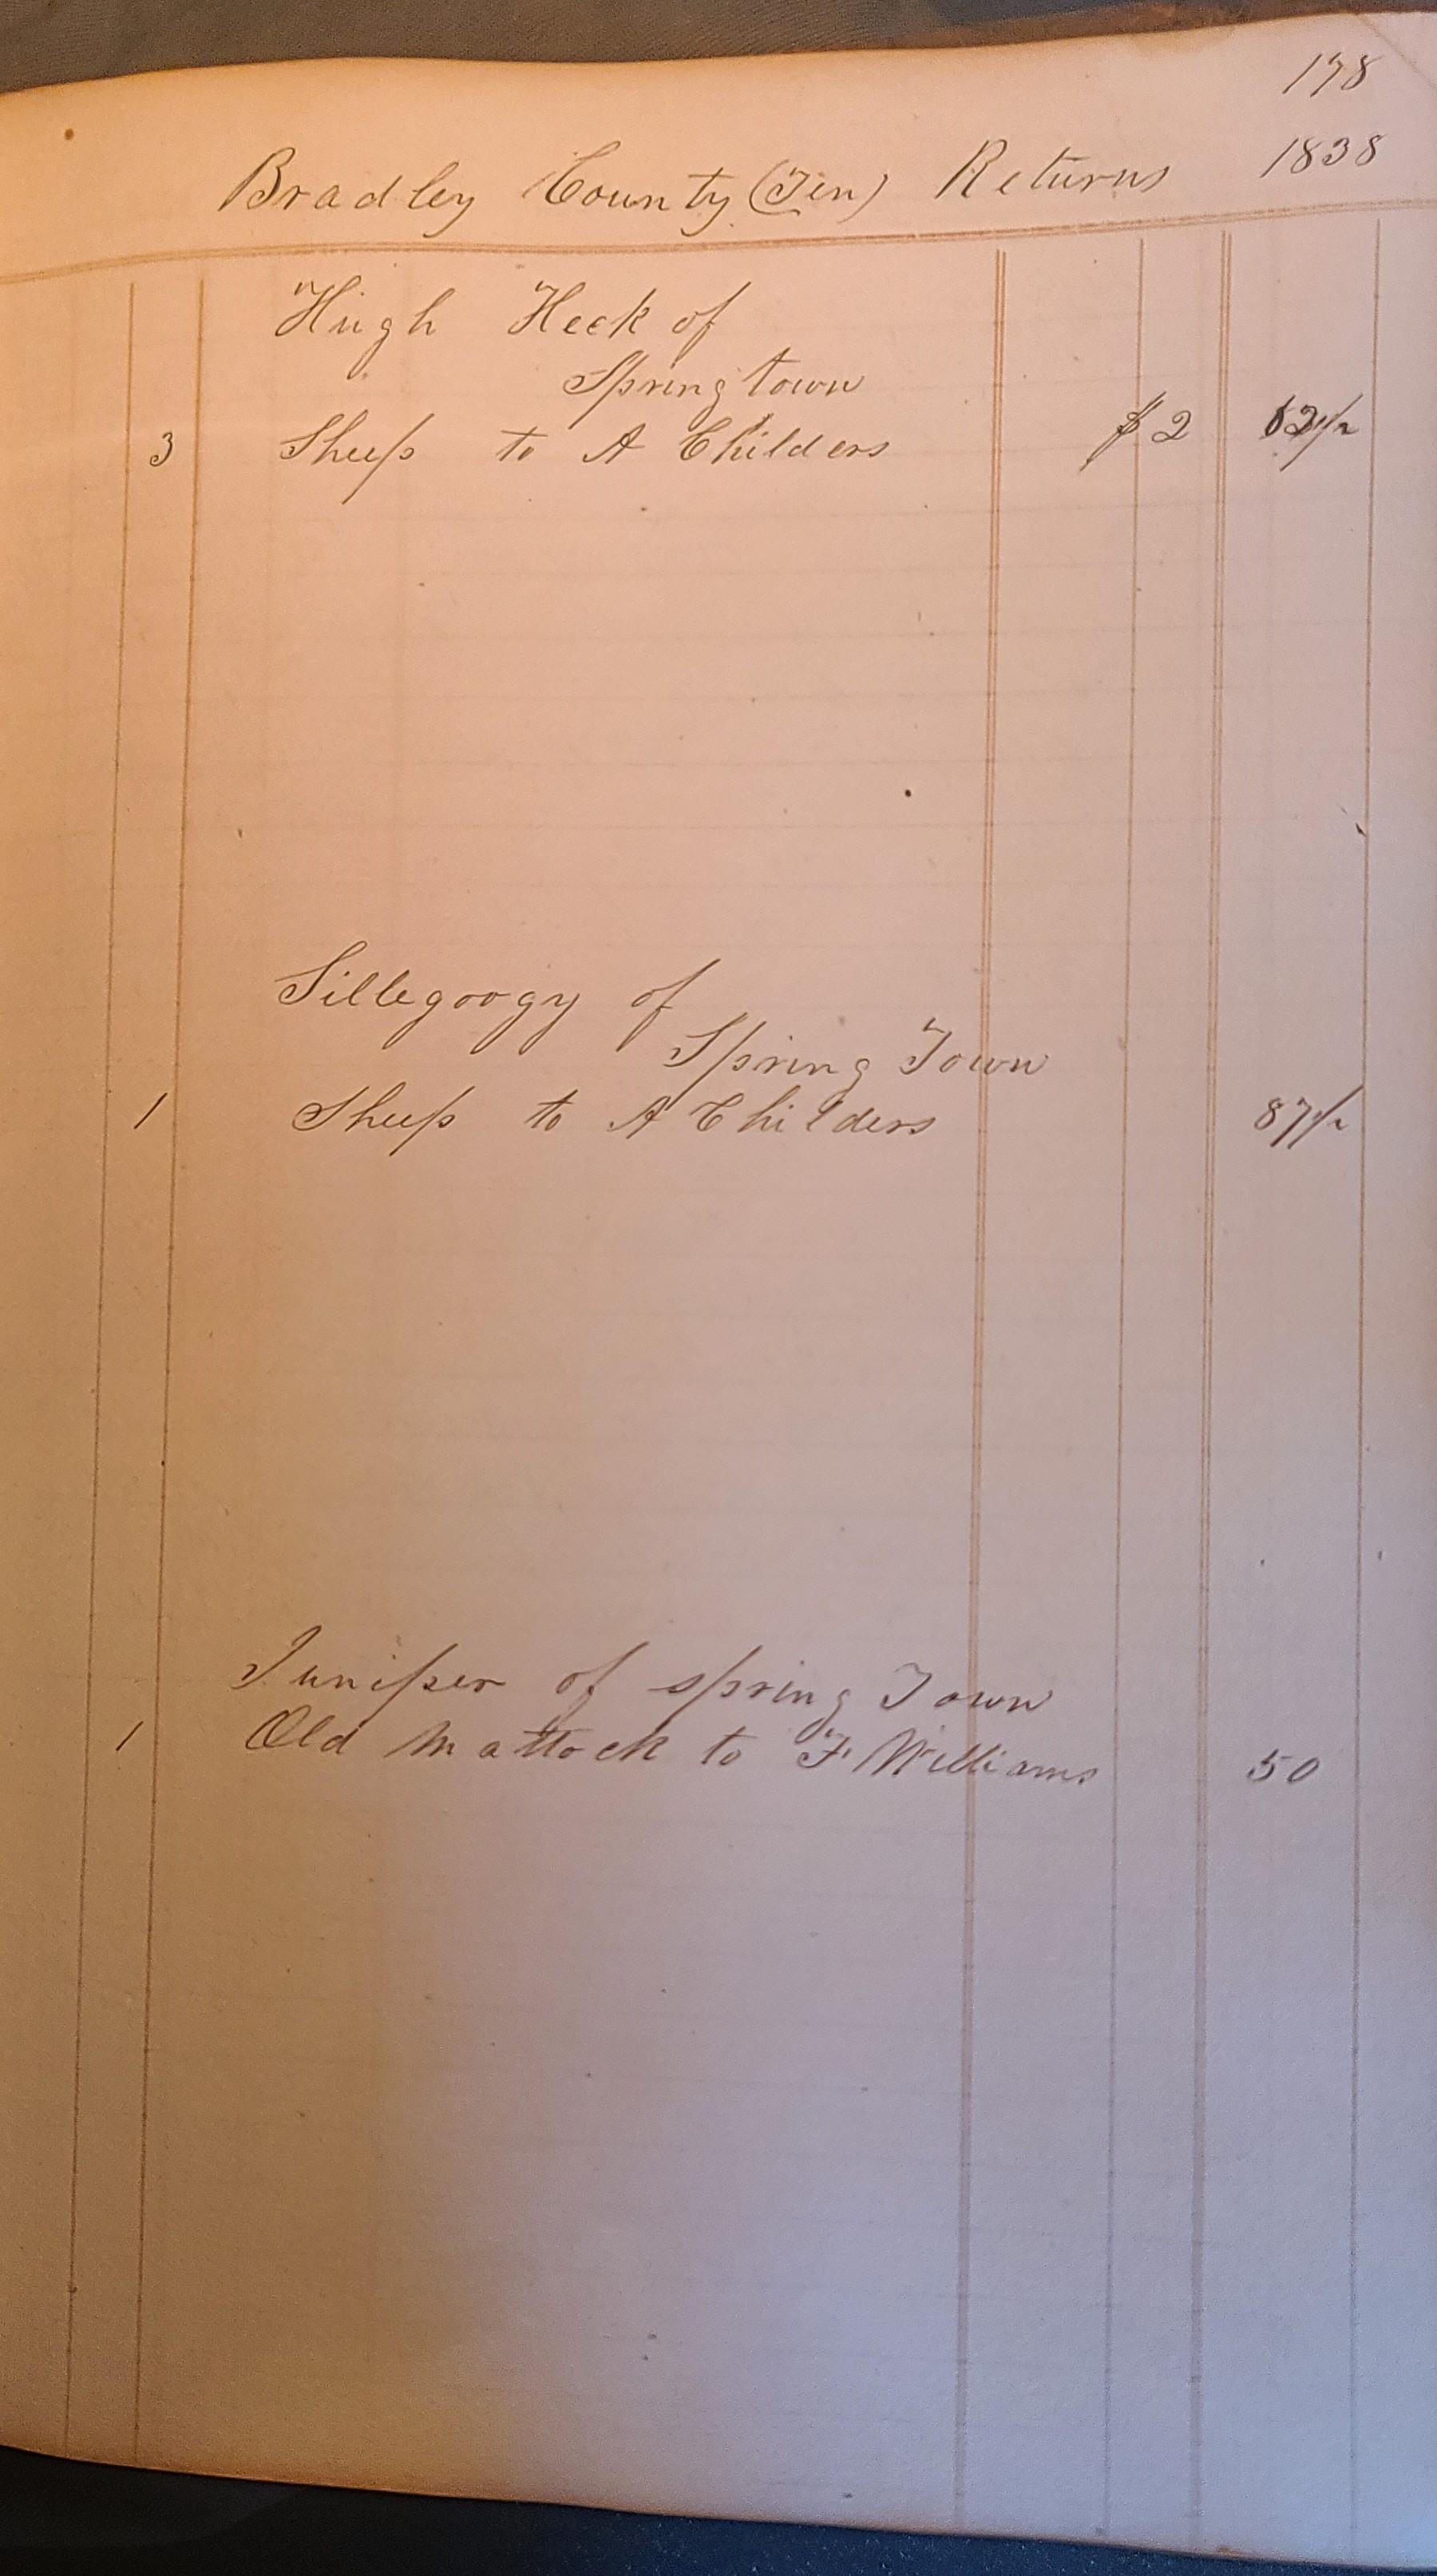 198
Bradley County (Ten) Returns 1838
Hugh Heck of
Spring town
3 Sheep to A Childers $2 62 1/2
Sillegoogy of
Spring Town
1 Sheep to A Childers 87 1/2
Juniper of spring Town
1 Old Mattock to F. Williams 50